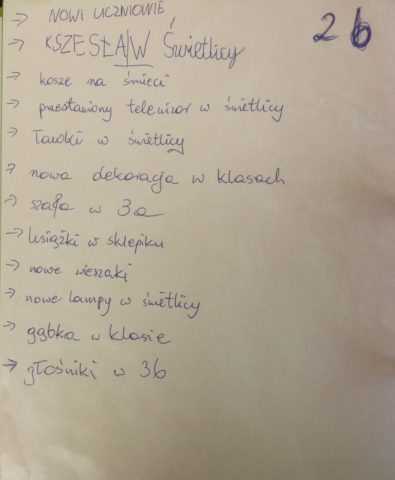 → NOWI UCZNIOWIE
2b
→ KSZESŁA W Świetlicy
→ kosze na śmieci
→ przestawiony telewizor w świetlicy
→ ławki w świetlicy
→ nowa dekoracja w klasach
→ szafa w 3a
→ książki w sklepiku
→ nowe wieszaki
→ nowe lampy w świetlicy
→ gąbka w klasie
→ głośniki w 3b